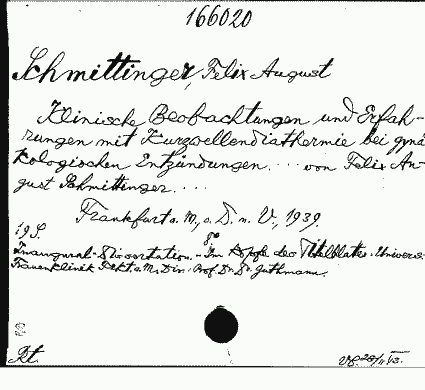 166020
Schmittinger, Felix August
Klinische Beobachtungen und Erfah-
rungen mit Kurzwellendiathermie bei gynä
kologischen Entzündungen. ... von Felix Au-
gust Schmittinger. ...
Frankfurt a. M., a. D. n. V., 1939.
19 S. 8°
Inaugural-Dissertation. - Im Kopfe des Titelblattes: Univers.-
Frauenklinik Fkft. a. M. Dir. Prof. Dr. Dr. Guthmann.
Rt.